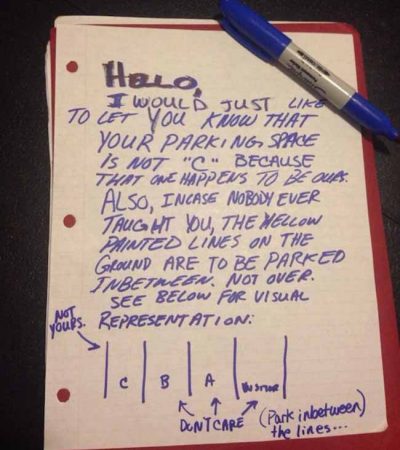 HELLO,
I WOULD JUST LIKE
TO LET YOU KNOW THAT
YOUR PARKING SPACE
IS NOT "C" BECAUSE
THAT ONE HAPPENS TO BE OURS.
ALSO, INCASE NOBODY EVER
TAUGHT YOU, THE YELLOW
PAINTED LINES ON THE
GROUND ARE TO BE PARKED
INBETWEEN. NOT OVER.
SEE BELOW FOR VISUAL
REPRESENTATION:
NOT
YOURS.
C B A VISITOR
DON'T CARE
(Park inbetween)
the lines...